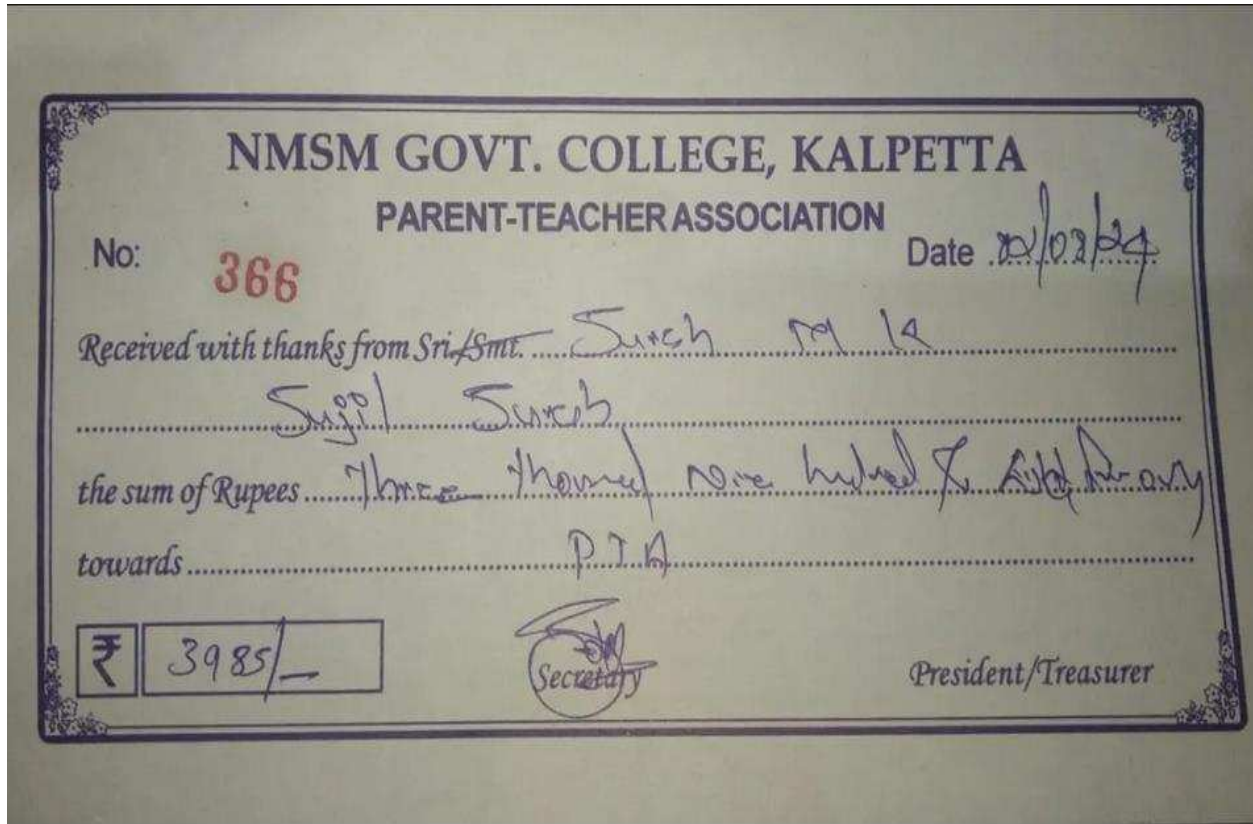 NMSM GOVT. COLLEGE, KALPETTA
PARENT-TEACHER ASSOCIATION
No: 366 Date
Received with thanks from Sri./Smt. Suresh M K
Sujil Suresh
the sum of Rupees Three Thousand Nine hundred & Eighty five only
towards P.T.A
₹ 3985/-
Secretary President/Treasurer